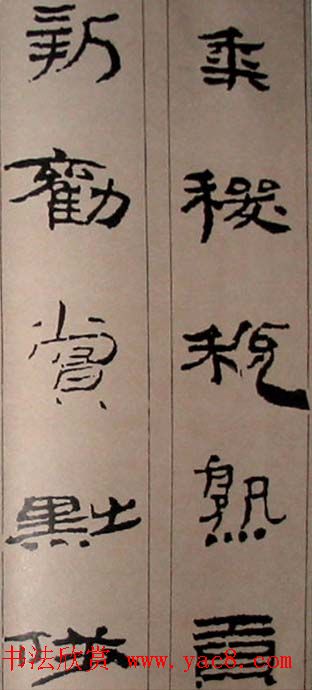 黍稷稅熟貢
新勸賞黜陟
书法欣赏 www.yac8.com